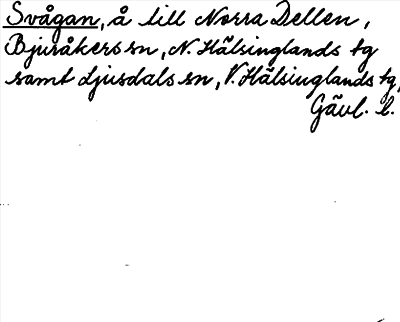 Svågan, å till Norra Dellen,
Bjuråkers sn, N. Hälsinglands tg
samt Ljusdals sn, V. Hälsinglands tg,
Gävl. l.